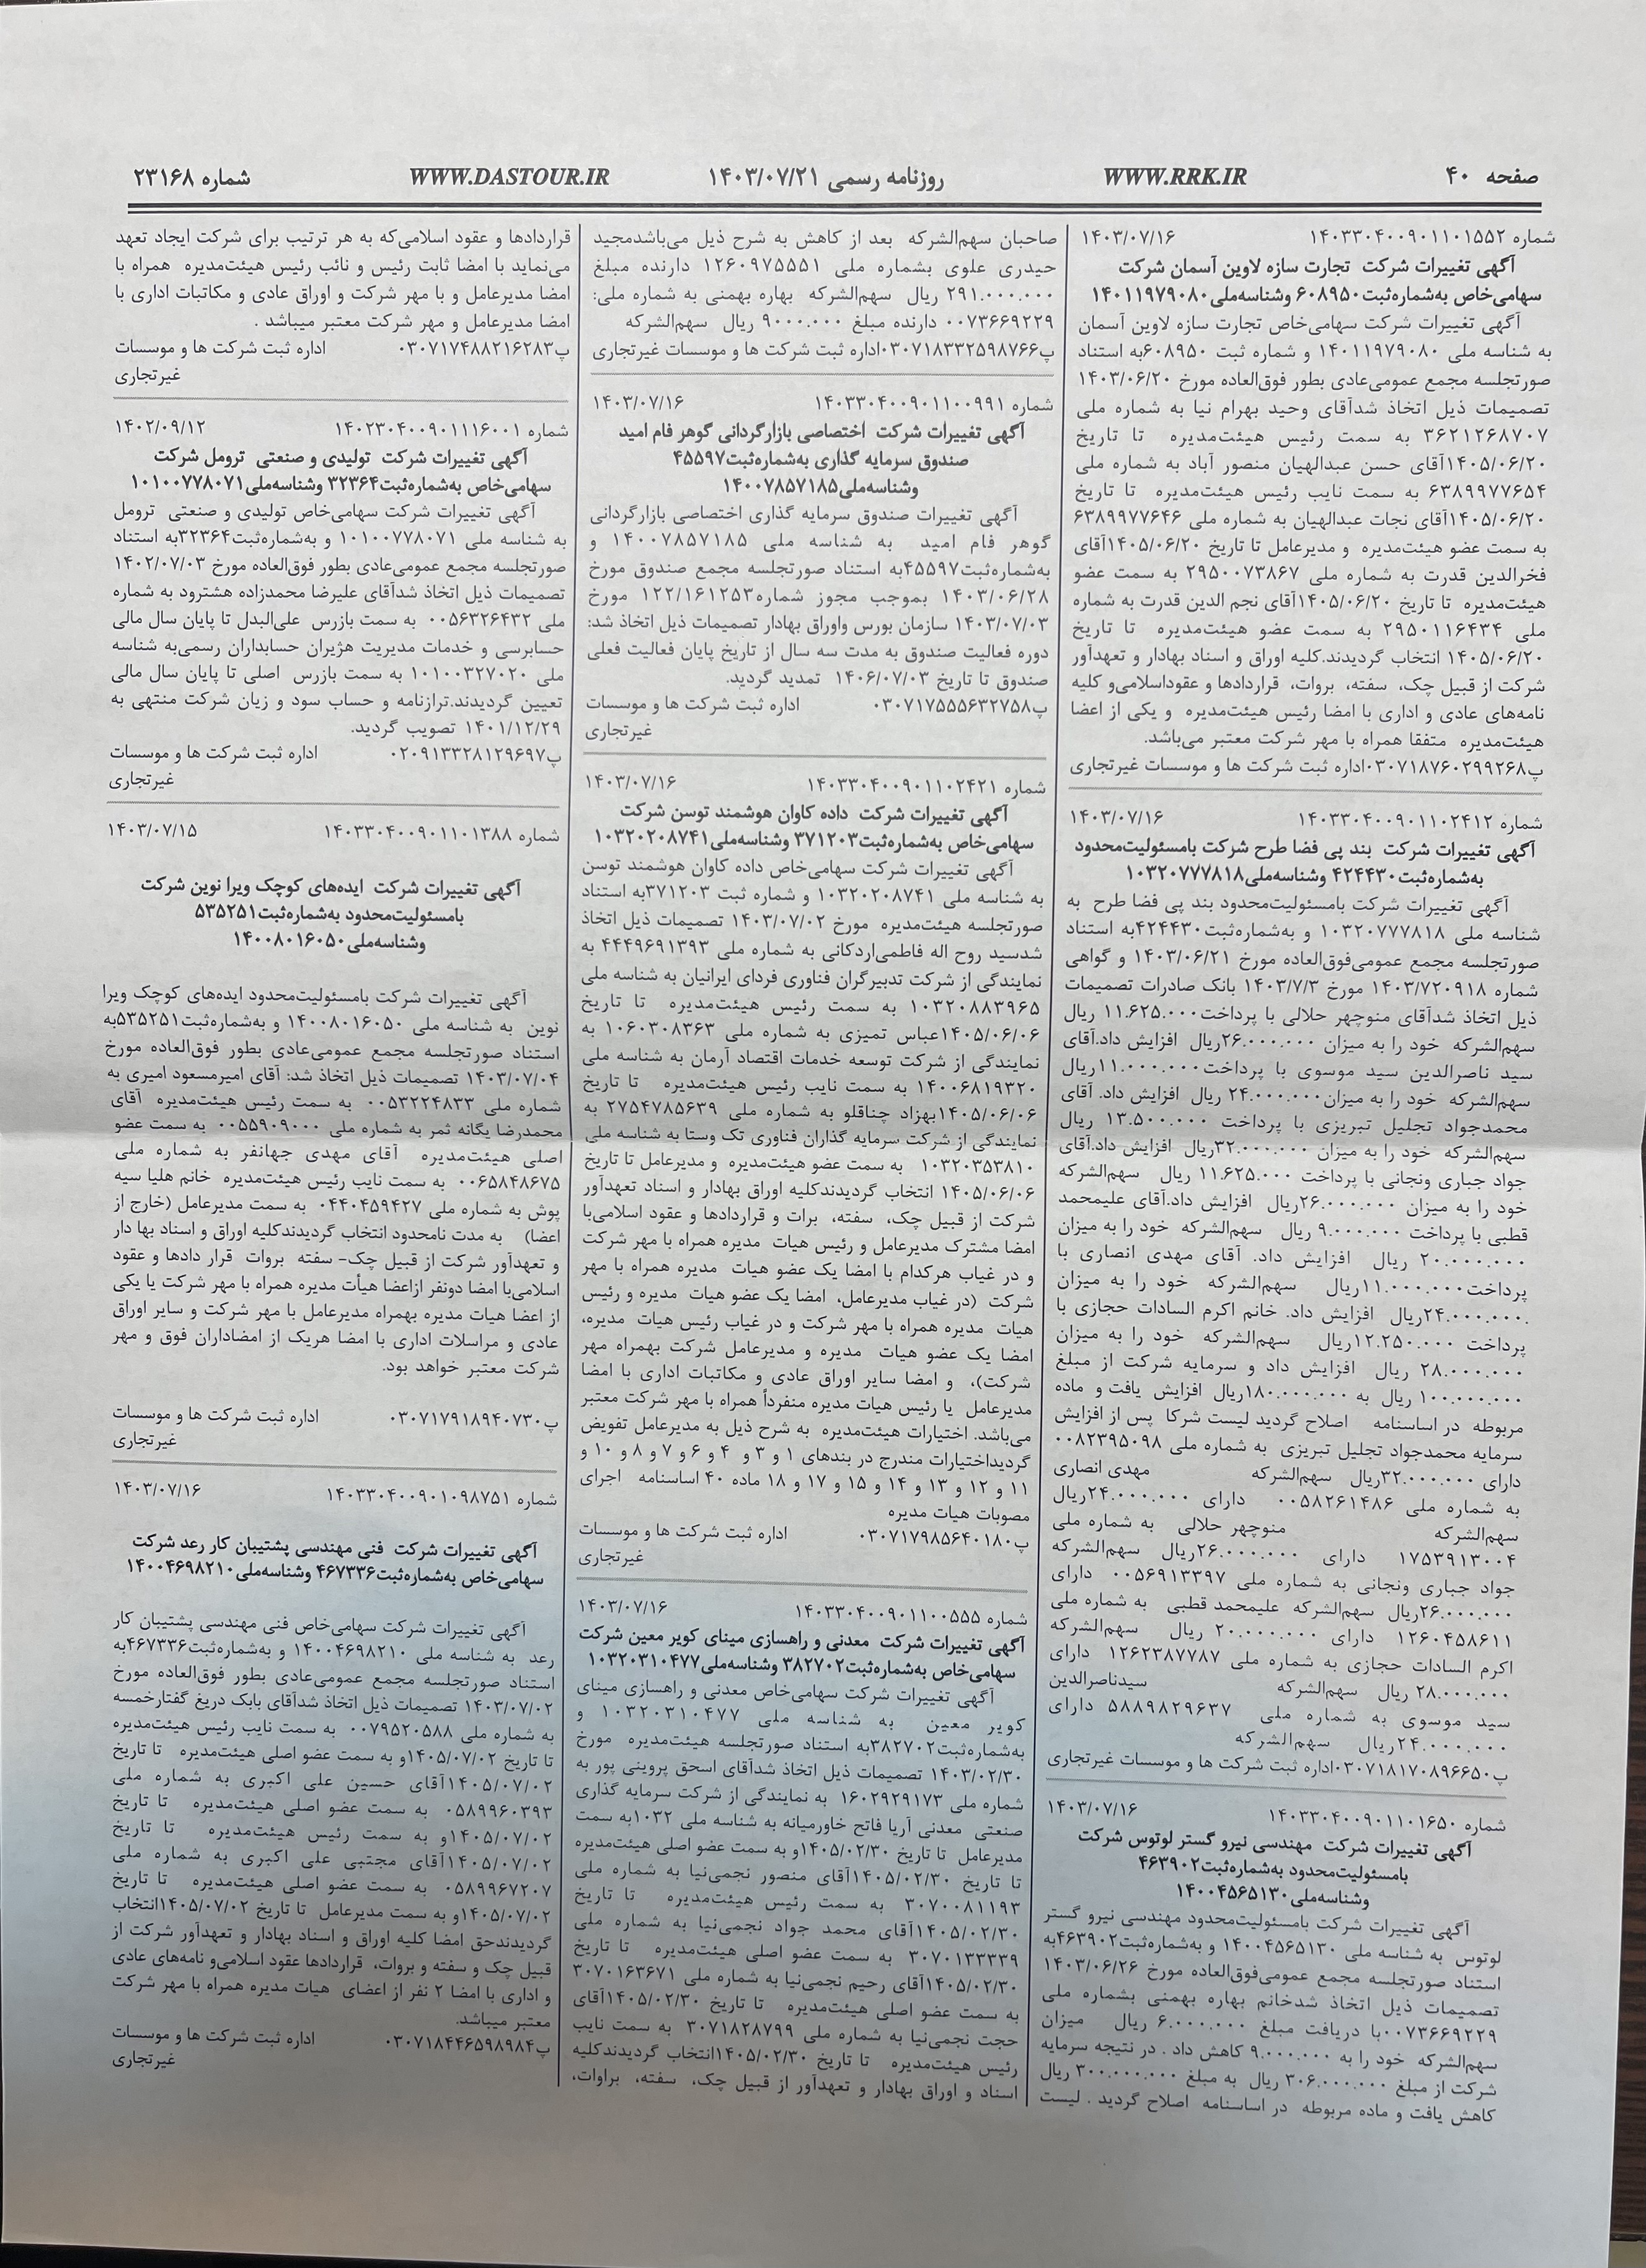 صفحه ۴۰
WWW.RRK.IR
روزنامه رسمی ۱۴۰۳/۰۷/۲۱
WWW.DASTOUR.IR
شماره ۲۳۱۶۸
شماره ۱۴۰۳۳۰۴۰۰۹۰۱۱۰۱۵۵۲ ۱۴۰۳/۰۷/۱۶
آگهی تغییرات شرکت تجارت سازه لاوین آسمان شرکت
سهامی‌خاص به‌شماره‌ثبت۶۰۸۹۵۰ وشناسه‌ملی۱۴۰۱۱۹۷۹۰۸۰
آگهی تغییرات شرکت سهامی‌خاص تجارت سازه لاوین آسمان
به شناسه ملی ۱۴۰۱۱۹۷۹۰۸۰ و شماره ثبت ۶۰۸۹۵۰به استناد
صورتجلسه مجمع عمومی‌عادی بطور فوق‌العاده مورخ ۱۴۰۳/۰۶/۲۰
تصمیمات ذیل اتخاذ شدآقای وحید بهرام نیا به شماره ملی
۳۶۲۱۲۶۸۷۰۷ به سمت رئیس هیئت‌مدیره تا تاریخ
۱۴۰۵/۰۶/۲۰آقای حسن عبدالهیان منصور آباد به شماره ملی
۶۳۸۹۹۷۷۶۵۴ به سمت نایب رئیس هیئت‌مدیره تا تاریخ
۱۴۰۵/۰۶/۲۰آقای نجات عبدالهیان به شماره ملی ۶۳۸۹۹۷۷۶۴۶
به سمت عضو هیئت‌مدیره و مدیرعامل تا تاریخ ۱۴۰۵/۰۶/۲۰آقای
فخرالدین قدرت به شماره ملی ۲۹۵۰۰۷۳۸۶۷ به سمت عضو
هیئت‌مدیره تا تاریخ ۱۴۰۵/۰۶/۲۰آقای نجم الدین قدرت به شماره
ملی ۲۹۵۰۱۱۶۴۳۴ به سمت عضو هیئت‌مدیره تا تاریخ
۱۴۰۵/۰۶/۲۰ انتخاب گردیدند.کلیه اوراق و اسناد بهادار و تعهدآور
شرکت از قبیل چک، سفته، بروات، قراردادها و عقوداسلامی‌و کلیه
نامه‌های عادی و اداری با امضا رئیس هیئت‌مدیره و یکی از اعضا
هیئت‌مدیره متفقا همراه با مهر شرکت معتبر می‌باشد.
پ۰۳۰۷۱۸۷۶۰۲۹۹۲۶۸اداره ثبت شرکت ها و موسسات غیرتجاری
شماره ۱۴۰۳۳۰۴۰۰۹۰۱۱۰۲۴۱۲ ۱۴۰۳/۰۷/۱۶
آگهی تغییرات شرکت بند پی فضا طرح شرکت بامسئولیت‌محدود
به‌شماره‌ثبت۴۲۴۴۳۰ وشناسه‌ملی۱۰۳۲۰۷۷۷۸۱۸
آگهی تغییرات شرکت بامسئولیت‌محدود بند پی فضا طرح به
شناسه ملی ۱۰۳۲۰۷۷۷۸۱۸ و به‌شماره‌ثبت۴۲۴۴۳۰به استناد
صورتجلسه مجمع عمومی‌فوق‌العاده مورخ ۱۴۰۳/۰۶/۲۱ و گواهی
شماره ۱۴۰۳/۷۲۰۹۱۸ مورخ ۱۴۰۳/۷/۳ بانک صادرات تصمیمات
ذیل اتخاذ شدآقای منوچهر حلالی با پرداخت۱۱.۶۲۵.۰۰۰ ریال
سهم‌الشرکه خود را به میزان ۲۶.۰۰۰.۰۰۰ریال افزایش داد.آقای
سید ناصرالدین سید موسوی با پرداخت۱۱.۰۰۰.۰۰۰ریال
سهم‌الشرکه خود را به میزان۲۴.۰۰۰.۰۰۰ ریال افزایش داد. آقای
محمدجواد تجلیل تبریزی با پرداخت ۱۳.۵۰۰.۰۰۰ ریال
سهم‌الشرکه خود را به میزان ۳۲.۰۰۰.۰۰۰ریال افزایش داد.آقای
جواد جباری ونجانی با پرداخت ۱۱.۶۲۵.۰۰۰ ریال سهم‌الشرکه
خود را به میزان ۲۶.۰۰۰.۰۰۰ریال افزایش داد.آقای علیمحمد
قطبی با پرداخت ۹.۰۰۰.۰۰۰ ریال سهم‌الشرکه خود را به میزان
۲۰.۰۰۰.۰۰۰ ریال افزایش داد. آقای مهدی انصاری با
پرداخت۱۱.۰۰۰.۰۰۰ریال سهم‌الشرکه خود را به میزان
۲۴.۰۰۰.۰۰۰.ریال افزایش داد. خانم اکرم السادات حجازی با
پرداخت ۱۲.۲۵۰.۰۰۰ریال سهم‌الشرکه خود را به میزان
۲۸.۰۰۰.۰۰۰ ریال افزایش داد و سرمایه شرکت از مبلغ
۱۰۰.۰۰۰.۰۰۰ ریال به ۱۸۰.۰۰۰.۰۰۰ریال افزایش یافت و ماده
مربوطه در اساسنامه اصلاح گردید لیست شرکا پس از افزایش
سرمایه محمدجواد تجلیل تبریزی به شماره ملی ۰۰۸۲۳۹۵۰۹۸
دارای ۳۲.۰۰۰.۰۰۰ریال سهم‌الشرکه مهدی انصاری
به شماره ملی ۰۰۵۸۲۶۱۴۸۶ دارای ۲۴.۰۰۰.۰۰۰ریال
سهم‌الشرکه منوچهر حلالی به شماره ملی
۱۷۵۳۹۱۳۰۰۴ دارای ۲۶.۰۰۰.۰۰۰ریال سهم‌الشرکه
جواد جباری ونجانی به شماره ملی ۰۰۵۶۹۱۳۳۹۷ دارای
۲۶.۰۰۰.۰۰۰ریال سهم‌الشرکه علیمحمد قطبی به شماره ملی
۱۲۶۰۴۵۸۶۱۱ دارای ۲۰.۰۰۰.۰۰۰ ریال سهم‌الشرکه
اکرم السادات حجازی به شماره ملی ۱۲۶۲۳۸۷۷۸۷ دارای
۲۸.۰۰۰.۰۰۰ ریال سهم‌الشرکه سیدناصرالدین
سید موسوی به شماره ملی ۵۸۸۹۸۲۹۶۳۷ دارای
۲۴.۰۰۰.۰۰۰ریال سهم‌الشرکه
پ۰۳۰۷۱۸۱۷۰۸۹۶۶۵۰اداره ثبت شرکت ها و موسسات غیرتجاری
شماره ۱۴۰۳۳۰۴۰۰۹۰۱۱۰۱۶۵۰ ۱۴۰۳/۰۷/۱۶
آگهی تغییرات شرکت مهندسی نیرو گستر لوتوس شرکت
بامسئولیت‌محدود به‌شماره‌ثبت۴۶۳۹۰۲
وشناسه‌ملی۱۴۰۰۴۵۶۵۱۳۰
آگهی تغییرات شرکت بامسئولیت‌محدود مهندسی نیرو گستر
لوتوس به شناسه ملی ۱۴۰۰۴۵۶۵۱۳۰ و به‌شماره‌ثبت۴۶۳۹۰۲به
استناد صورتجلسه مجمع عمومی‌فوق‌العاده مورخ ۱۴۰۳/۰۶/۲۶
تصمیمات ذیل اتخاذ شدخانم بهاره بهمنی بشماره ملی
۰۰۷۳۶۶۹۲۲۹با دریافت مبلغ ۶.۰۰۰.۰۰۰ ریال میزان
سهم‌الشرکه خود را به ۹.۰۰۰.۰۰۰ کاهش داد . در نتیجه سرمایه
شرکت از مبلغ ۳۰۶.۰۰۰.۰۰۰ ریال به مبلغ ۳۰۰.۰۰۰.۰۰۰ ریال
کاهش یافت و ماده مربوطه در اساسنامه اصلاح گردید . لیست
صاحبان سهم‌الشرکه بعد از کاهش به شرح ذیل می‌باشدمجید
حیدری علوی بشماره ملی ۱۲۶۰۹۷۵۵۵۱ دارنده مبلغ
۲۹۱.۰۰۰.۰۰۰ ریال سهم‌الشرکه بهاره بهمنی به شماره ملی:
۰۰۷۳۶۶۹۲۲۹ دارنده مبلغ ۹۰۰۰.۰۰۰ ریال سهم‌الشرکه
پ۰۳۰۷۱۸۳۳۲۵۹۸۷۶۶اداره ثبت شرکت ها و موسسات غیرتجاری
شماره ۱۴۰۳۳۰۴۰۰۹۰۱۱۰۰۹۹۱ ۱۴۰۳/۰۷/۱۶
آگهی تغییرات شرکت اختصاصی بازارگردانی گوهر فام امید
صندوق سرمایه گذاری به‌شماره‌ثبت۴۵۵۹۷
وشناسه‌ملی۱۴۰۰۷۸۵۷۱۸۵
آگهی تغییرات صندوق سرمایه گذاری اختصاصی بازارگردانی
گوهر فام امید به شناسه ملی ۱۴۰۰۷۸۵۷۱۸۵ و
به‌شماره‌ثبت۴۵۵۹۷به استناد صورتجلسه مجمع صندوق مورخ
۱۴۰۳/۰۶/۲۸ بموجب مجوز شماره۱۲۲/۱۶۱۲۵۳ مورخ
۱۴۰۳/۰۷/۰۳ سازمان بورس واوراق بهادار تصمیمات ذیل اتخاذ شد:
دوره فعالیت صندوق به مدت سه سال از تاریخ پایان فعالیت فعلی
صندوق تا تاریخ ۱۴۰۶/۰۷/۰۳ تمدید گردید.
پ۰۳۰۷۱۷۵۵۵۶۳۲۷۵۸ اداره ثبت شرکت ها و موسسات
غیرتجاری
شماره ۱۴۰۳۳۰۴۰۰۹۰۱۱۰۲۴۲۱ ۱۴۰۳/۰۷/۱۶
آگهی تغییرات شرکت داده کاوان هوشمند توسن شرکت
سهامی‌خاص به‌شماره‌ثبت۳۷۱۲۰۳ وشناسه‌ملی۱۰۳۲۰۲۰۸۷۴۱
آگهی تغییرات شرکت سهامی‌خاص داده کاوان هوشمند توسن
به شناسه ملی ۱۰۳۲۰۲۰۸۷۴۱ و شماره ثبت ۳۷۱۲۰۳به استناد
صورتجلسه هیئت‌مدیره مورخ ۱۴۰۳/۰۷/۰۲ تصمیمات ذیل اتخاذ
شدسید روح اله فاطمی‌اردکانی به شماره ملی ۴۴۴۹۶۹۱۳۹۳ به
نمایندگی از شرکت تدبیرگران فناوری فردای ایرانیان به شناسه ملی
۱۰۳۲۰۸۸۳۹۶۵ به سمت رئیس هیئت‌مدیره تا تاریخ
۱۴۰۵/۰۶/۰۶عباس تمیزی به شماره ملی ۱۰۶۰۳۰۸۳۶۳ به
نمایندگی از شرکت توسعه خدمات اقتصاد آرمان به شناسه ملی
۱۴۰۰۶۸۱۹۳۲۰ به سمت نایب رئیس هیئت‌مدیره تا تاریخ
۱۴۰۵/۰۶/۰۶بهزاد چناقلو به شماره ملی ۲۷۵۴۷۸۵۶۳۹ به
نمایندگی از شرکت سرمایه گذاران فناوری تک وستا به شناسه ملی
۱۰۳۲۰۳۵۳۸۱۰ به سمت عضو هیئت‌مدیره و مدیرعامل تا تاریخ
۱۴۰۵/۰۶/۰۶ انتخاب گردیدندکلیه اوراق بهادار و اسناد تعهدآور
شرکت از قبیل چک، سفته، برات و قراردادها و عقود اسلامی‌با
امضا مشترک مدیرعامل و رئیس هیات مدیره همراه با مهر شرکت
و در غیاب هرکدام با امضا یک عضو هیات مدیره همراه با مهر
شرکت (در غیاب مدیرعامل، امضا یک عضو هیات مدیره و رئیس
هیات مدیره همراه با مهر شرکت و در غیاب رئیس هیات مدیره،
امضا یک عضو هیات مدیره و مدیرعامل شرکت بهمراه مهر
شرکت)، و امضا سایر اوراق عادی و مکاتبات اداری با امضا
مدیرعامل یا رئیس هیات مدیره منفرداً همراه با مهر شرکت معتبر
می‌باشد. اختیارات هیئت‌مدیره به شرح ذیل به مدیرعامل تفویض
گردیداختیارات مندرج در بندهای ۱ و ۳ و ۴ و ۶ و ۷ و ۸ و ۱۰ و
۱۱ و ۱۲ و ۱۳ و ۱۴ و ۱۵ و ۱۷ و ۱۸ ماده ۴۰ اساسنامه اجرای
مصوبات هیات مدیره
پ۰۳۰۷۱۷۹۸۵۶۴۰۱۸۰ اداره ثبت شرکت ها و موسسات
غیرتجاری
شماره ۱۴۰۳۳۰۴۰۰۹۰۱۱۰۰۵۵۵ ۱۴۰۳/۰۷/۱۶
آگهی تغییرات شرکت معدنی و راهسازی مینای کویر معین شرکت
سهامی‌خاص به‌شماره‌ثبت۳۸۲۷۰۲ وشناسه‌ملی۱۰۳۲۰۳۱۰۴۷۷
آگهی تغییرات شرکت سهامی‌خاص معدنی و راهسازی مینای
کویر معین به شناسه ملی ۱۰۳۲۰۳۱۰۴۷۷ و
به‌شماره‌ثبت۳۸۲۷۰۲به استناد صورتجلسه هیئت‌مدیره مورخ
۱۴۰۳/۰۲/۳۰ تصمیمات ذیل اتخاذ شدآقای اسحق پروینی پور به
شماره ملی ۱۶۰۲۹۲۹۱۷۳ به نمایندگی از شرکت سرمایه گذاری
صنعتی معدنی آریا فاتح خاورمیانه به شناسه ملی ۱۰۳۲به سمت
مدیرعامل تا تاریخ ۱۴۰۵/۰۲/۳۰و به سمت عضو اصلی هیئت‌مدیره
تا تاریخ ۱۴۰۵/۰۲/۳۰آقای منصور نجمی‌نیا به شماره ملی
۳۰۷۰۰۸۱۱۹۳ به سمت رئیس هیئت‌مدیره تا تاریخ
۱۴۰۵/۰۲/۳۰آقای محمد جواد نجمی‌نیا به شماره ملی
۳۰۷۰۱۳۳۳۳۹ به سمت عضو اصلی هیئت‌مدیره تا تاریخ
۱۴۰۵/۰۲/۳۰آقای رحیم نجمی‌نیا به شماره ملی ۳۰۷۰۱۶۳۶۷۱
به سمت عضو اصلی هیئت‌مدیره تا تاریخ ۱۴۰۵/۰۲/۳۰آقای
حجت نجمی‌نیا به شماره ملی ۳۰۷۱۸۲۸۷۹۹ به سمت نایب
رئیس هیئت‌مدیره تا تاریخ ۱۴۰۵/۰۲/۳۰انتخاب گردیدندکلیه
اسناد و اوراق بهادار و تعهدآور از قبیل چک، سفته، براوات،
قراردادها و عقود اسلامی‌که به هر ترتیب برای شرکت ایجاد تعهد
می‌نماید با امضا ثابت رئیس و نائب رئیس هیئت‌مدیره همراه با
امضا مدیرعامل و با مهر شرکت و اوراق عادی و مکاتبات اداری با
امضا مدیرعامل و مهر شرکت معتبر میباشد .
پ۰۳۰۷۱۷۴۸۸۲۱۶۲۸۳ اداره ثبت شرکت ها و موسسات
غیرتجاری
شماره ۱۴۰۲۳۰۴۰۰۹۰۱۱۱۶۰۰۱ ۱۴۰۲/۰۹/۱۲
آگهی تغییرات شرکت تولیدی و صنعتی ترومل شرکت
سهامی‌خاص به‌شماره‌ثبت۳۲۳۶۴ وشناسه‌ملی۱۰۱۰۰۷۷۸۰۷۱
آگهی تغییرات شرکت سهامی‌خاص تولیدی و صنعتی ترومل
به شناسه ملی ۱۰۱۰۰۷۷۸۰۷۱ و به‌شماره‌ثبت۳۲۳۶۴به استناد
صورتجلسه مجمع عمومی‌عادی بطور فوق‌العاده مورخ ۱۴۰۲/۰۷/۰۳
تصمیمات ذیل اتخاذ شدآقای علیرضا محمدزاده هشترود به شماره
ملی ۰۰۵۶۳۲۶۴۳۲ به سمت بازرس علی‌البدل تا پایان سال مالی
حسابرسی و خدمات مدیریت هژیران حسابداران رسمی‌به شناسه
ملی ۱۰۱۰۰۳۲۷۰۲۰ به سمت بازرس اصلی تا پایان سال مالی
تعیین گردیدند.ترازنامه و حساب سود و زیان شرکت منتهی به
۱۴۰۱/۱۲/۲۹ تصویب گردید.
پ۰۲۰۹۱۳۳۲۸۱۲۹۶۹۷ اداره ثبت شرکت ها و موسسات
غیرتجاری
شماره ۱۴۰۳۳۰۴۰۰۹۰۱۱۰۱۳۸۸ ۱۴۰۳/۰۷/۱۵
آگهی تغییرات شرکت ایده‌های کوچک ویرا نوین شرکت
بامسئولیت‌محدود به‌شماره‌ثبت۵۳۵۲۵۱
وشناسه‌ملی۱۴۰۰۸۰۱۶۰۵۰
آگهی تغییرات شرکت بامسئولیت‌محدود ایده‌های کوچک ویرا
نوین به شناسه ملی ۱۴۰۰۸۰۱۶۰۵۰ و به‌شماره‌ثبت۵۳۵۲۵۱به
استناد صورتجلسه مجمع عمومی‌عادی بطور فوق‌العاده مورخ
۱۴۰۳/۰۷/۰۴ تصمیمات ذیل اتخاذ شد: آقای امیرمسعود امیری به
شماره ملی ۰۰۵۳۲۲۴۸۳۳ به سمت رئیس هیئت‌مدیره آقای
محمدرضا یگانه ثمر به شماره ملی ۰۰۵۵۹۰۹۰۰۰ به سمت عضو
اصلی هیئت‌مدیره آقای مهدی جهانفر به شماره ملی
۰۰۶۵۸۴۸۶۷۵ به سمت نایب رئیس هیئت‌مدیره خانم هلیا سیه
پوش به شماره ملی ۰۴۴۰۴۵۹۴۲۷ به سمت مدیرعامل (خارج از
اعضا) به مدت نامحدود انتخاب گردیدندکلیه اوراق و اسناد بها دار
و تعهدآور شرکت از قبیل چک- سفته بروات قرار دادها و عقود
اسلامی‌با امضا دونفر ازاعضا هیأت مدیره همراه با مهر شرکت یا یکی
از اعضا هیات مدیره بهمراه مدیرعامل با مهر شرکت و سایر اوراق
عادی و مراسلات اداری با امضا هریک از امضاداران فوق و مهر
شرکت معتبر خواهد بود.
پ۰۳۰۷۱۷۹۱۸۹۴۰۷۳۰ اداره ثبت شرکت ها و موسسات
غیرتجاری
شماره ۱۴۰۳۳۰۴۰۰۹۰۱۰۹۸۷۵۱ ۱۴۰۳/۰۷/۱۶
آگهی تغییرات شرکت فنی مهندسی پشتیبان کار رعد شرکت
سهامی‌خاص به‌شماره‌ثبت۴۶۷۳۳۶ وشناسه‌ملی۱۴۰۰۴۶۹۸۲۱۰
آگهی تغییرات شرکت سهامی‌خاص فنی مهندسی پشتیبان کار
رعد به شناسه ملی ۱۴۰۰۴۶۹۸۲۱۰ و به‌شماره‌ثبت۴۶۷۳۳۶به
استناد صورتجلسه مجمع عمومی‌عادی بطور فوق‌العاده مورخ
۱۴۰۳/۰۷/۰۲ تصمیمات ذیل اتخاذ شدآقای بابک دریغ گفتارخمسه
به شماره ملی ۰۰۷۹۵۲۰۵۸۸ به سمت نایب رئیس هیئت‌مدیره
تا تاریخ ۱۴۰۵/۰۷/۰۲و به سمت عضو اصلی هیئت‌مدیره تا تاریخ
۱۴۰۵/۰۷/۰۲آقای حسین علی اکبری به شماره ملی
۰۵۸۹۹۶۰۳۹۳ به سمت عضو اصلی هیئت‌مدیره تا تاریخ
۱۴۰۵/۰۷/۰۲و به سمت رئیس هیئت‌مدیره تا تاریخ
۱۴۰۵/۰۷/۰۲آقای مجتبی علی اکبری به شماره ملی
۰۵۸۹۹۶۷۲۰۷ به سمت عضو اصلی هیئت‌مدیره تا تاریخ
۱۴۰۵/۰۷/۰۲و به سمت مدیرعامل تا تاریخ ۱۴۰۵/۰۷/۰۲انتخاب
گردیدندحق امضا کلیه اوراق و اسناد بهادار و تعهدآور شرکت از
قبیل چک و سفته و بروات، قراردادها عقود اسلامی‌و نامه‌های عادی
و اداری با امضا ۲ نفر از اعضای هیات مدیره همراه با مهر شرکت
معتبر میباشد.
پ۰۳۰۷۱۸۴۴۶۵۹۸۹۸۴ اداره ثبت شرکت ها و موسسات
غیرتجاری